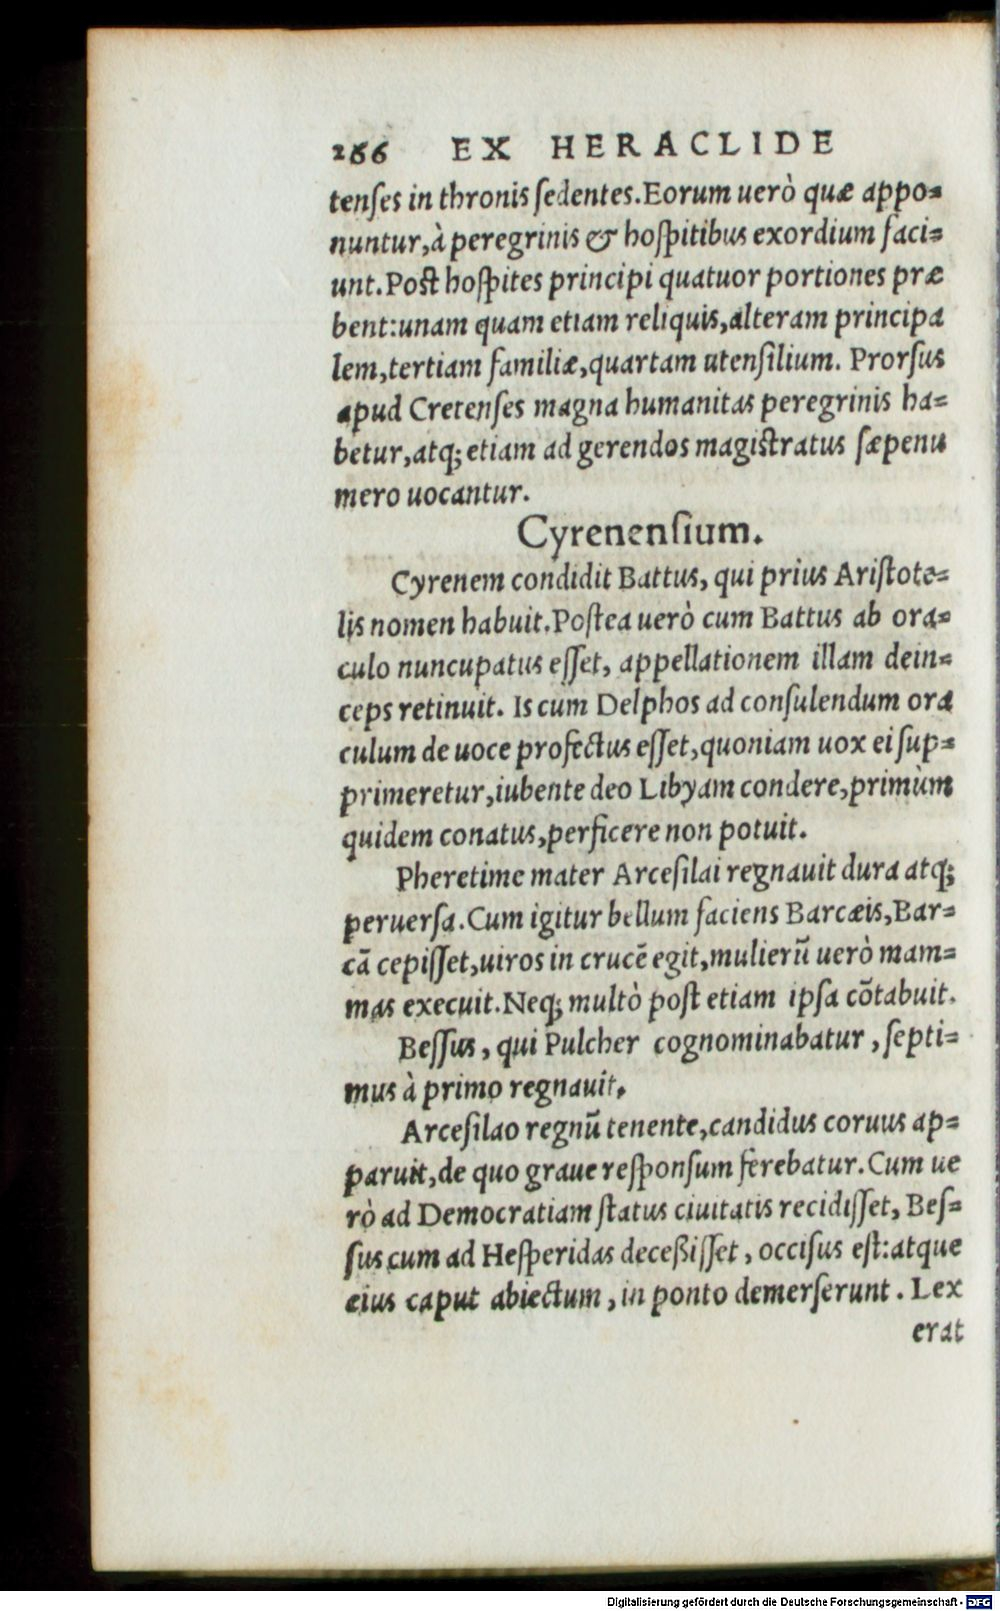 266 EX HERACLIDE
tenſes in thronis ſedentes.Eorum uerò quæ appo-
nuntur,à peregrinis & hoſpitibus exordium faci-
unt.Poſt hoſpites principi quatuor portiones præ
bent:unam quam etiam reliquis,alteram principa
lem,tertiam familiæ,quartam utenſilium. Prorſus
apud Cretenſes magna humanitas peregrinis ha-
betur,atq; etiam ad gerendos magiſtratus ſæpenu
mero uocantur.
Cyrenenſium.
Cyrenem condidit Battus, qui prius Ariſtote-
lis nomen habuit.Poſtea uerò cum Battus ab ora-
culo nuncupatus eſſet, appellationem illam dein-
ceps retinuit. Is cum Delphos ad conſulendum ora
culum de uoce profectus eſſet,quoniam uox ei ſup-
primeretur,iubente deo Libyam condere,primùm
quidem conatus,perficere non potuit.
Pheretime mater Arceſilai regnauit dura atq;
peruerſa.Cum igitur bellum faciens Barcæis,Bar-
cā cepiſſet,uiros in crucē egit,mulierū uerò mam-
mas execuit.Neq; multò poſt etiam ipſa cōtabuit.
Beſſus, qui Pulcher cognominabatur, ſepti-
mus à primo regnauit.
Arceſilao regnū tenente,candidus coruus ap-
paruit,de quo graue reſponſum ferebatur.Cum ue
rò ad Democratiam ſtatus ciuitatis recidiſſet, Beſ-
ſus cum ad Heſperidas deceßiſſet, occiſus eſt:atque
eius caput abiectum, in ponto demerſerunt. Lex
erat
Digitalisierung gefördert durch die Deutsche Forschungsgemeinschaft - DFG